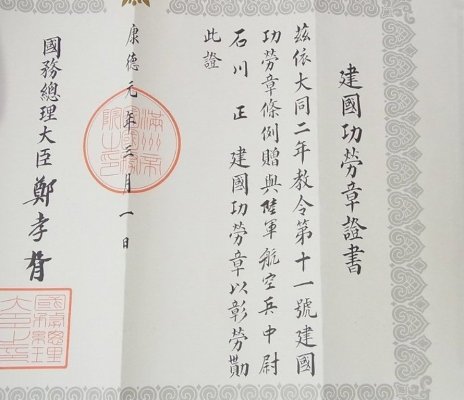 建國功勞章證書
茲依大同二年教令第十一號建國
功勞章條例贈與陸軍航空兵中尉
石川正 建國功勞章以彰勞勩
此證
康德元年三月一日
國務總理大臣 鄭孝胥
國務總理大臣之印